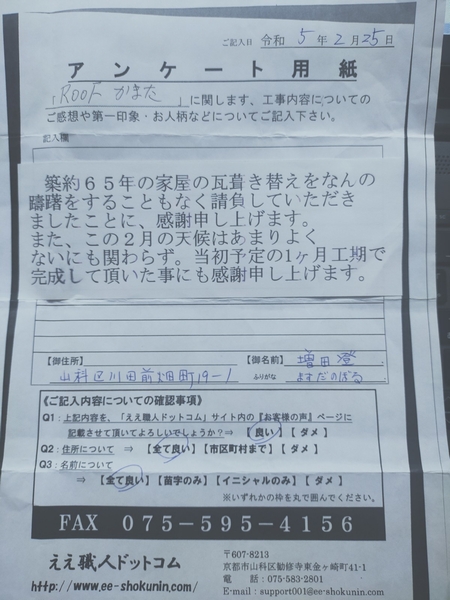 ご記入日 令和 5年2月25日
アンケート用紙
「ROOFかまた」に関します、工事内容についての
ご感想や第一印象・お人柄などについてご記入下さい。
記入欄
築約65年の家屋の瓦葺き替えをなんの
躊躇をすることもなく請負していただき
ましたことに、感謝申し上げます。
また、この2月の天候はあまりよく
ないにも関わらず。当初予定の1ヶ月工期で
完成して頂いた事にも感謝申し上げます。
【御住所】 【御名前】 増田 登
山科区川田前畑町19-1 ふりがな ますだのぼる
《ご記入内容についての確認事項》
Q1:上記内容を、「ええ職人ドットコム」サイト内の『お客様の声』ページに
記載させて頂いてよろしいでしょうか?⇒ 【良い】【ダメ】
Q2:住所について ⇒ 【全て良い】【市区町村まで】【ダメ】
Q3:名前について
⇒ 【全て良い】【苗字のみ】【イニシャルのみ】【ダメ】
※いずれかの枠を丸で囲んでください。
FAX 075-595-4156
ええ職人ドットコム
http://www.ee-shokunin.com/
〒607-8213
京都市山科区勧修寺東金ヶ崎町41-1
電 話:075-583-2801
E-mail:support001@ee-shokunin.com